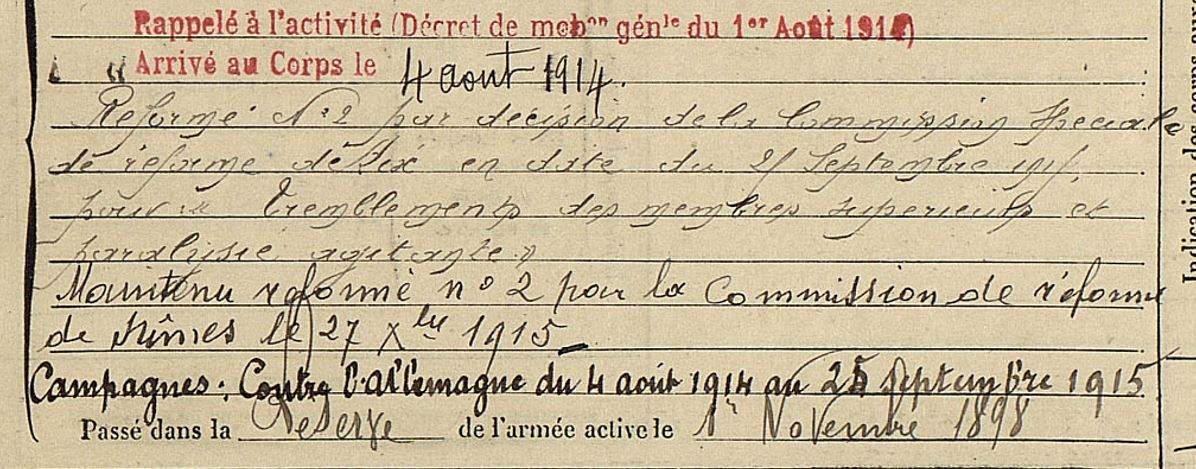 Rappelé à l'activité (Décret de mobon génle du 1er Août 1914)
Arrivé au Corps le 4 aout 1914.
Réformé N°2 par décision de la Commission Speciale
de réforme de Aix en date du 25 Septembre 1915,
pour « Tremblements des membres superieurs et
paralysie agitante »
Maintenu réformé n° 2 par la Commission de réforme
de Nîmes le 27 Xbre 1915
Campagnes : Contre l'Allemagne du 4 août 1914 au 25 Septembre 1915
Passé dans la Réserve de l'armée active le 1er Novembre 1898
Indication des corps